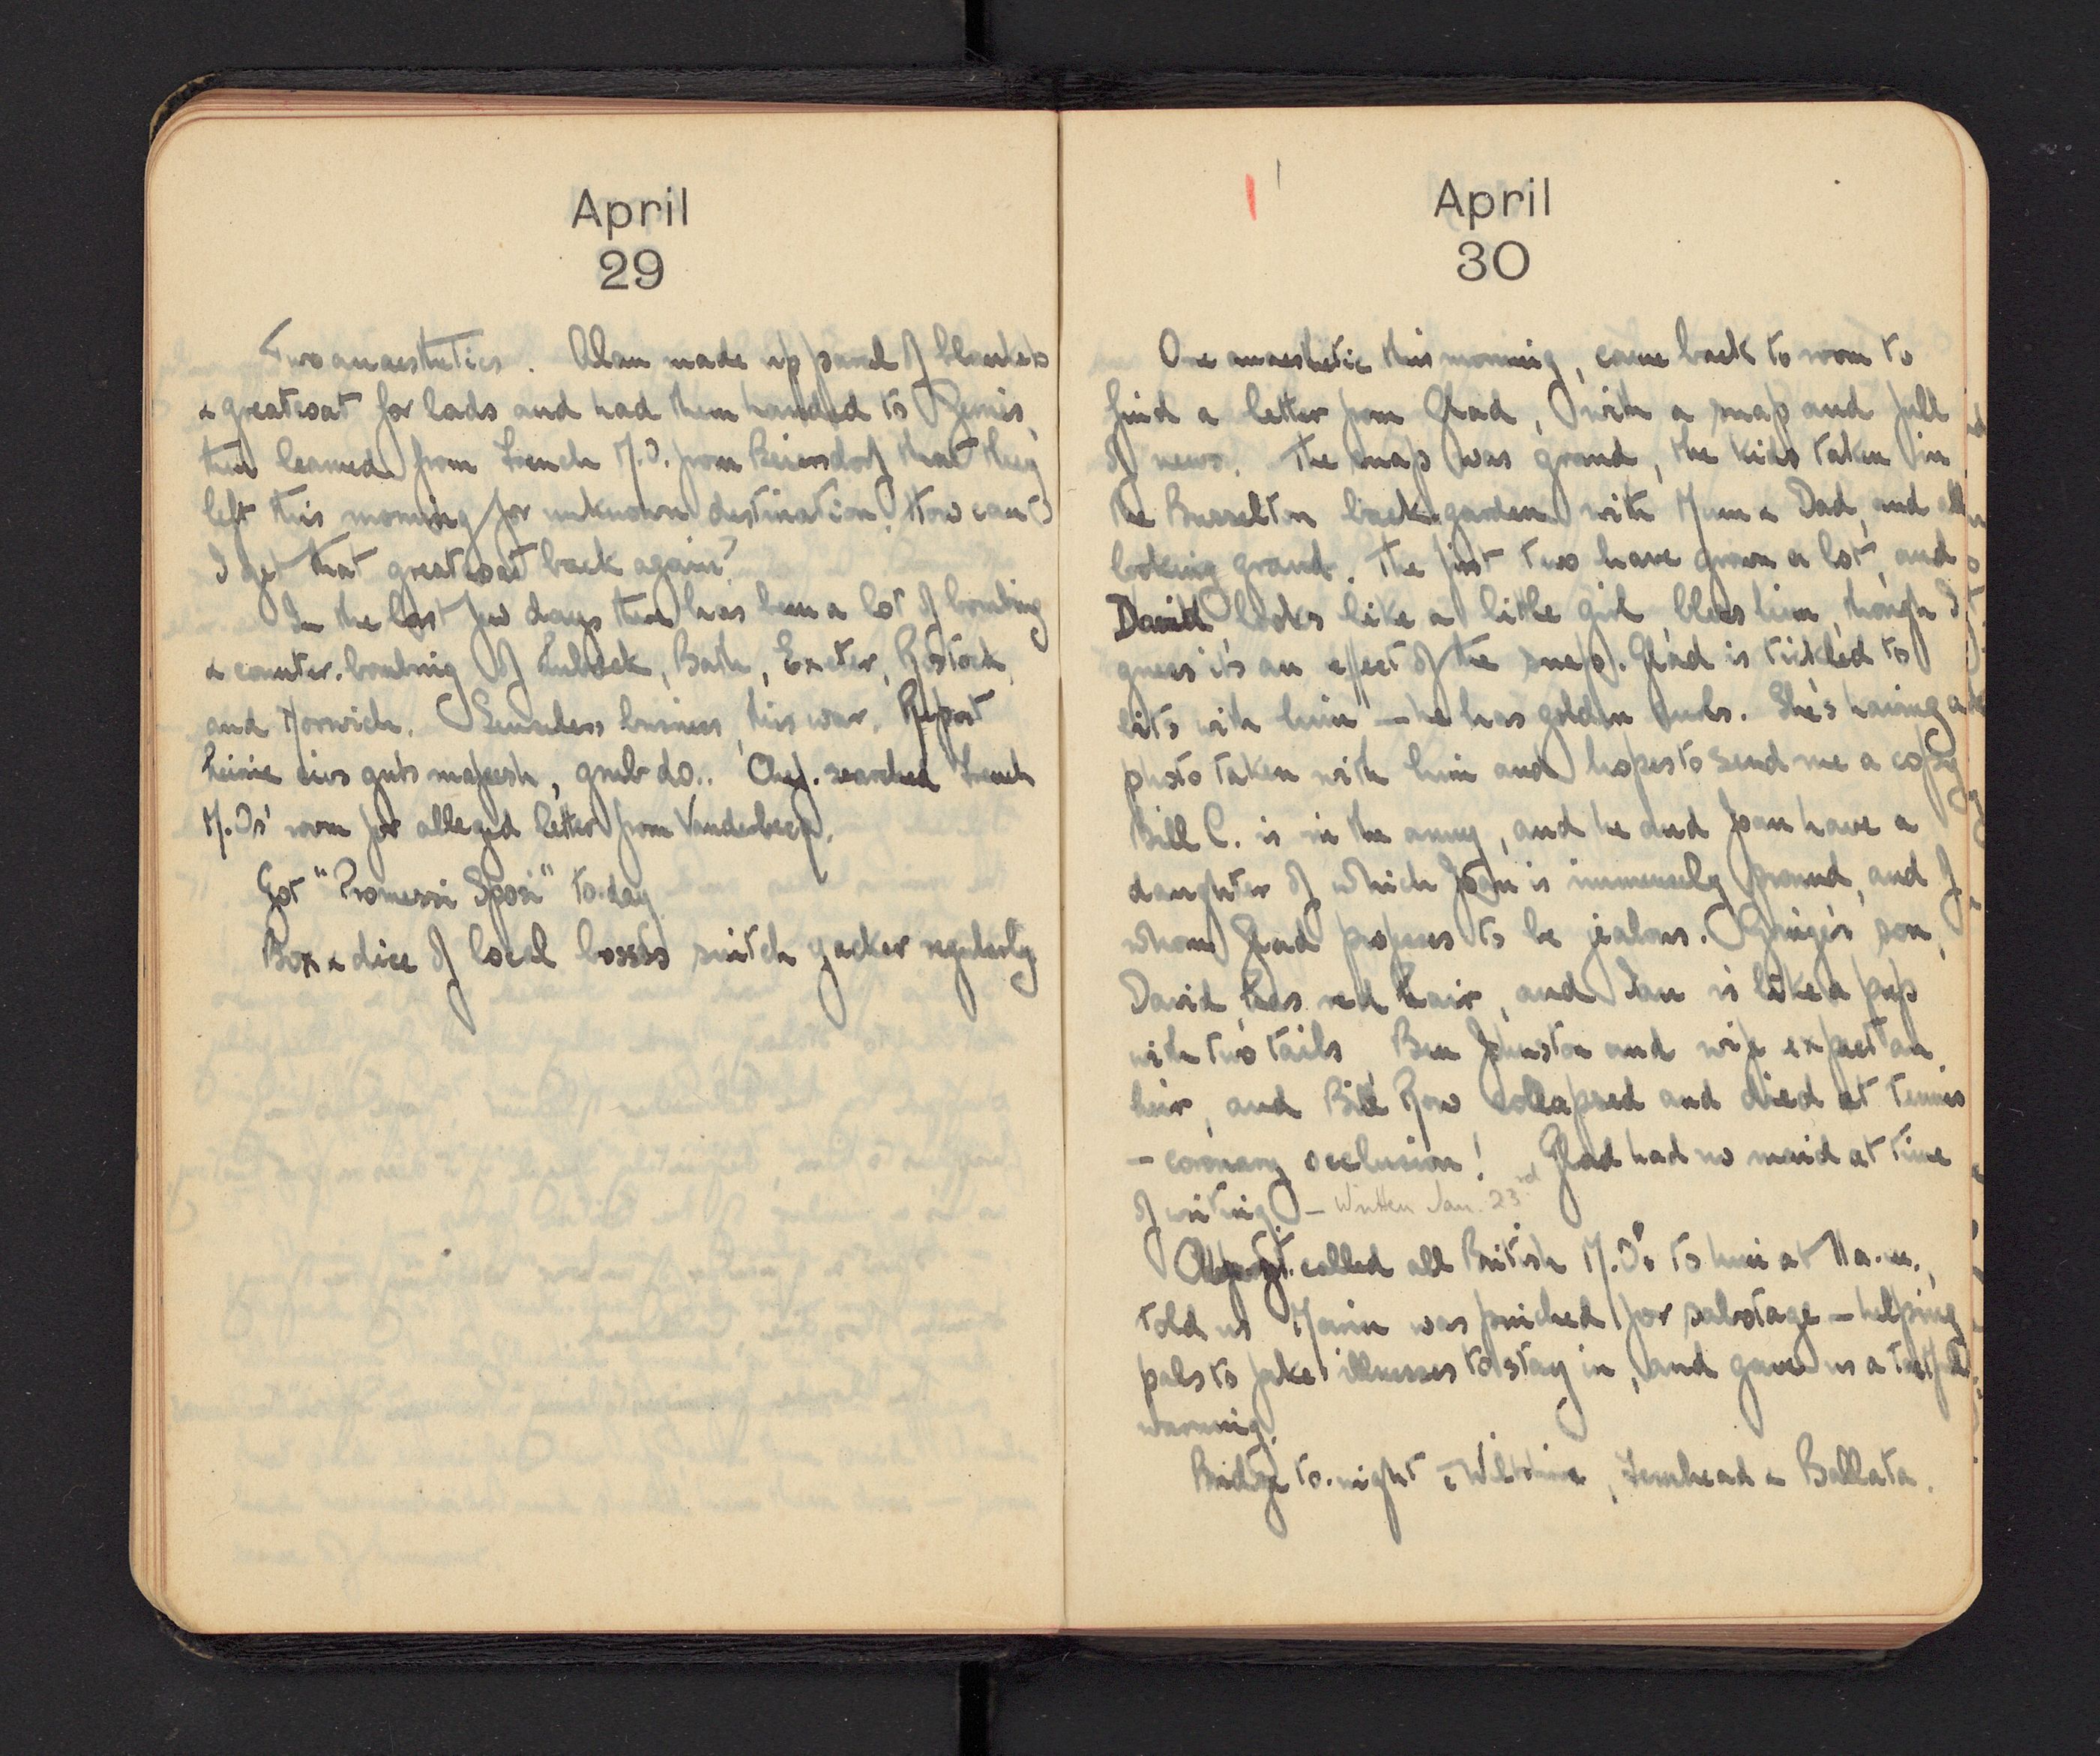 April
29
Two anaesthetics. Alan made up parcel of blankets
& greatcoat for lads and had them handed to
then learned from French M.O. from Beiersdorf that they
left this morning for unknown destination. How can't
I get that greatcoat back again?
In the last few days there has been a lot of bombing
& counter-bombing of Lubeck, Bath, Exeter, Rostock,
and Norwich. Senseless business, this war. Report
heinie civs guts mafeesh, grub do.. searched French
M.Os' room for alleged letter from
Got "Promessi Sposi" to-day
Box & dice of local bosses switch regularly
April
30
One anaesthetic this morning, came back to room to
find a letter from Glad, with a snap and full
of news. The snap was grand, the kids taken in
the Busselton back-garden with Mum & Dad, and all
looking grand. The first two have grown a lot, and
David looks like a little girl, bless him, though I
guess it's an effect of the snap. Glad is tickled to
bits with him — he has golden curls. She's having a
photo taken with him and hopes to send me a copy
Bill C. is in the army, and he and Joan have a
daughter of which Joan is immensely proud, and of
whom Glad professes to be jealous. Ginger's son,
David, has red hair, and Ian is like a pup
with two tails Ben Johnston and wife expect an
heir, and Bill Row collapsed and died at tennis
— coronary occlusion! Glad had no maid at time
of writing — Written Jan. 23rd
called all British M.O's to him at 11 a.m.,
told us was pinched for sabotage — helping
pals to fake illnesses to stay in, and gave us a
warning.
Bridge to-night c̄ Wiltshire, Fernhead & Ballata.